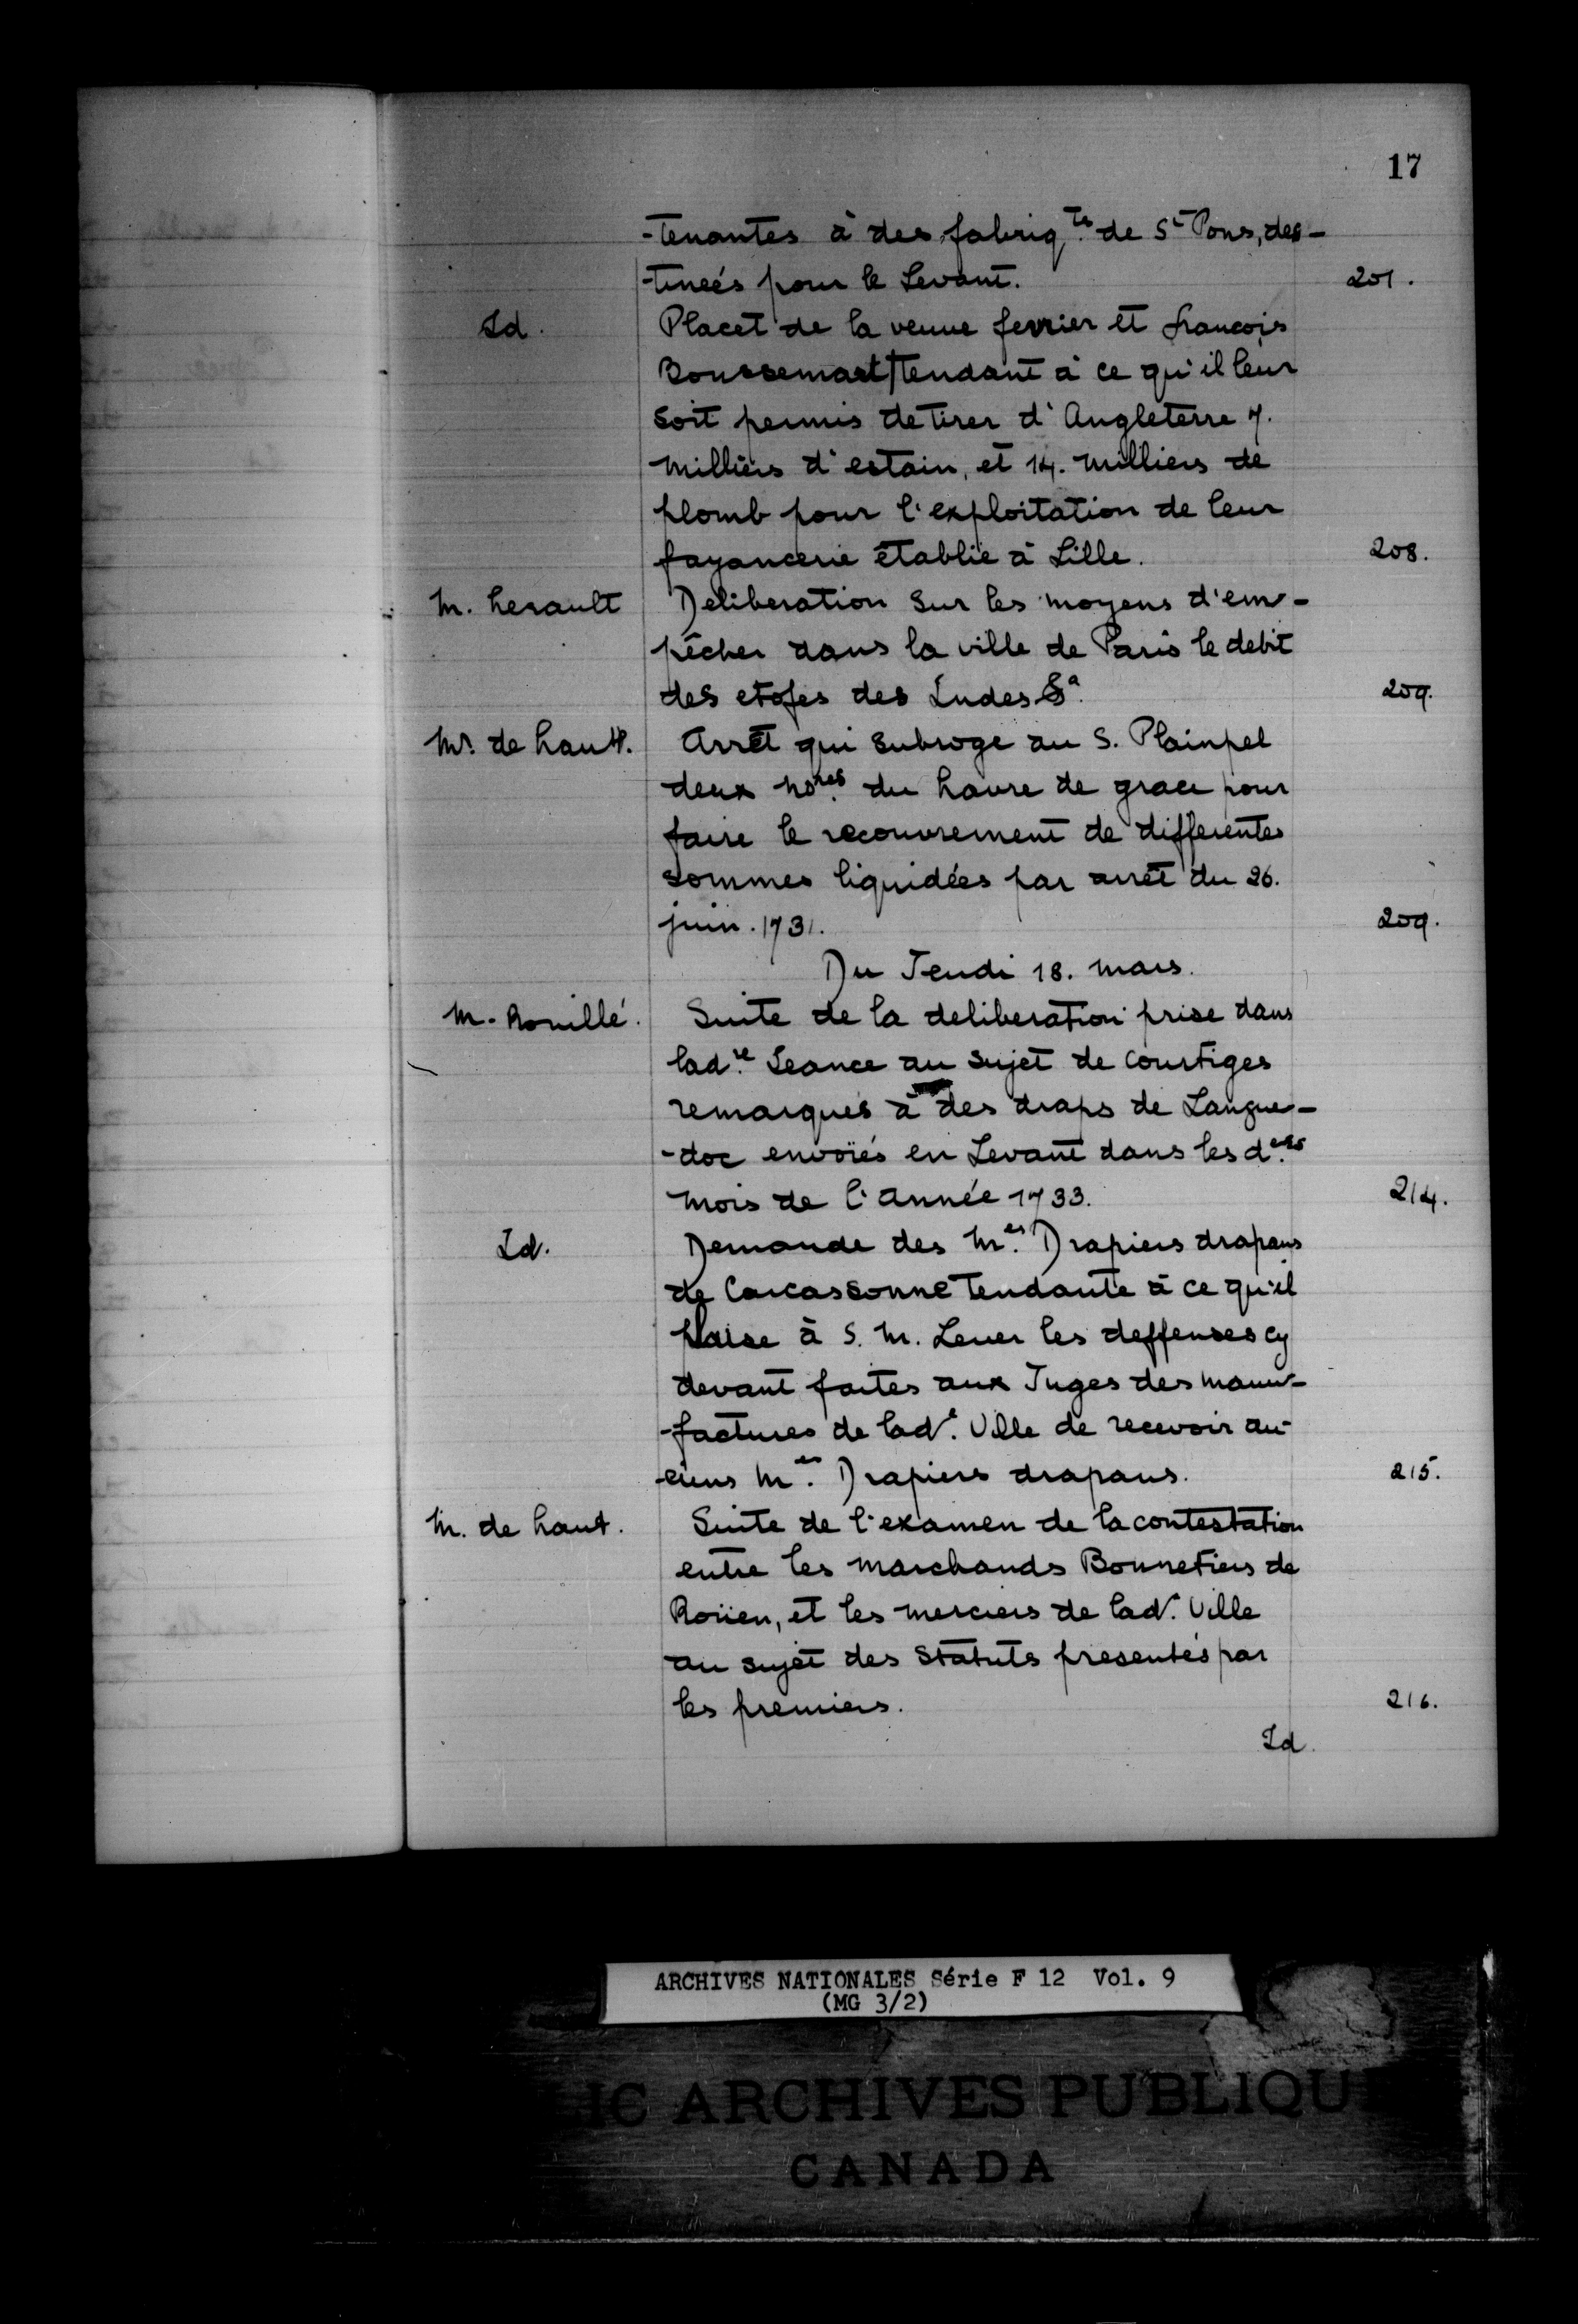 17
-tenantes à des fabriq.ts de St Pons, des-
-tineés pour le Levant. 201.
Id. Placet de la veuve fevrier et francois
Boussemart tendant à ce qu'il leur
soit permis de tirer d'Angleterre 7.
milliers d'estain, et 14. milliers de
plomb pour l'exploitation de leur
fayancerie établie à Lille. 208.
M. herault Deliberation sur les moyens d'em-
pêcher dans la ville de Paris le debit
des etofes des Indes &a. 209.
Mr. de hautt. Arrêt qui subroge au S. Plainpel
deux nores. du havre de grace pour
faire le recouvrement de differentes
sommes liquidées par arrêt du 26.
juin. 1731. 209.
Du Jeudi 18. mars.
M. Rouillé. Suite de la deliberation prise dans
lad.te Seance au sujet de courtiges
remarqués à des draps de Langue-
-doc envoïés en Levant dans les d.ers
mois de l'année 1733. 214.
Id. Demande des M.es Drapiers drapans
de Carcassonne tendante à ce qu'il
plaise à S. M. Lever les deffenses cy
devant faites aux Juges des manu-
-factures de lad.e Ville de recevoir au-
-cuns M.es Drapiers drapans. 215.
M. de haut. Suite de l'examen de la contestation
entre les marchands Bonnetiers de
Roüen, et les merciers de lad.e Ville
au sujet des Statuts presentés par
les premiers. 216.
Id.
ARCHIVES NATIONALES Série F 12 Vol. 9
(MG 3/2)
LIC ARCHIVES PUBLIQUE
CANADA